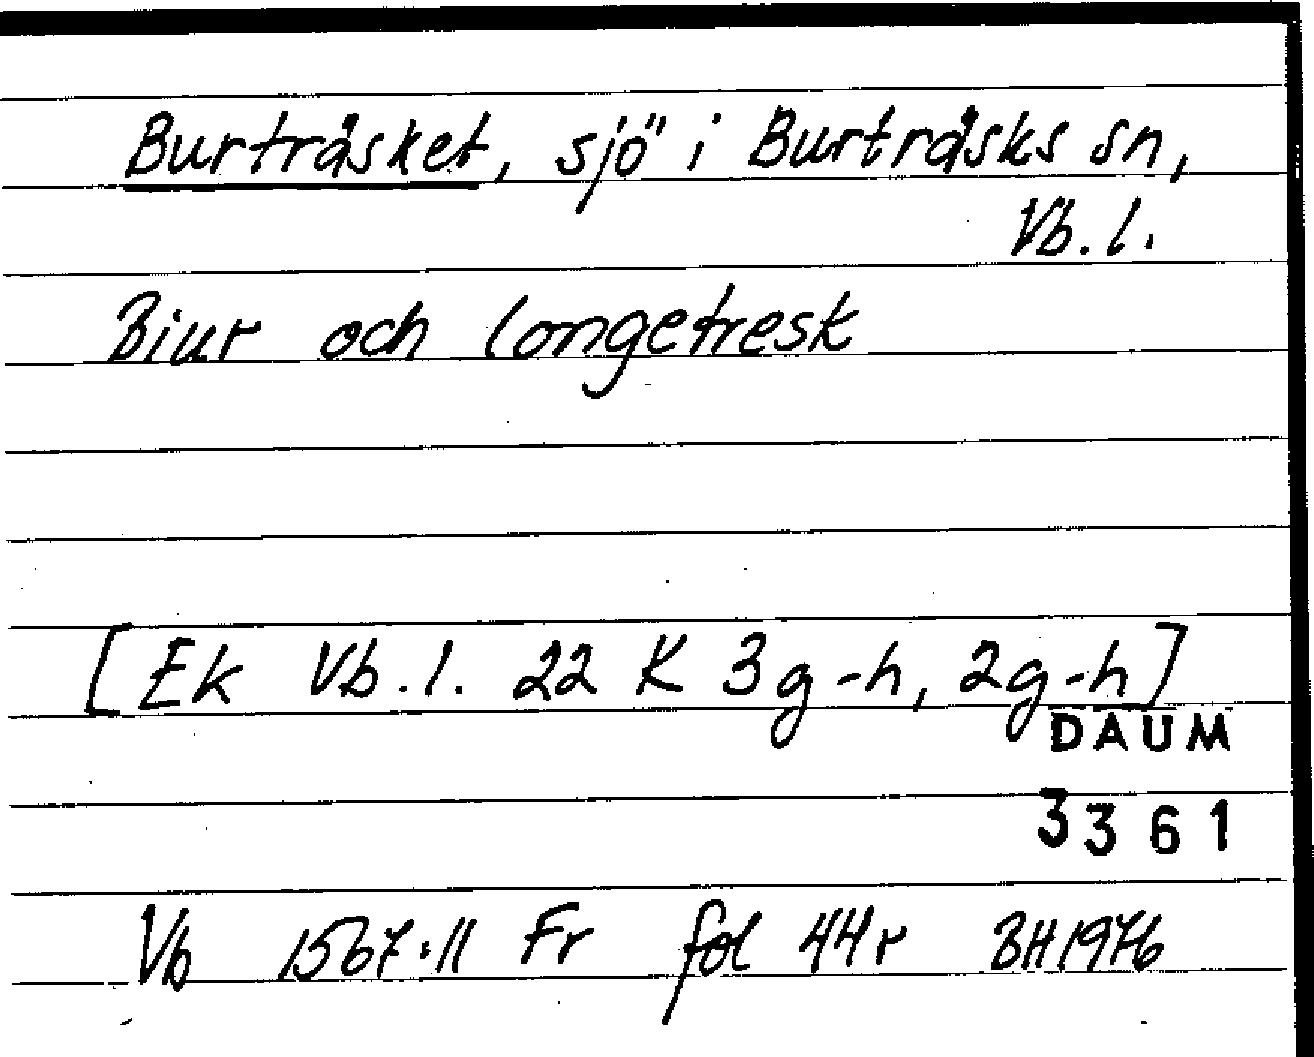 Burträsket, sjö i Burträsks sn,
Vb. l.
Biur och longetresk
[Ek Vb. l. 22 K 3g-h, 2g-h]
DAUM
3361
Vb 1567:11 Fr fol 44r BH1976